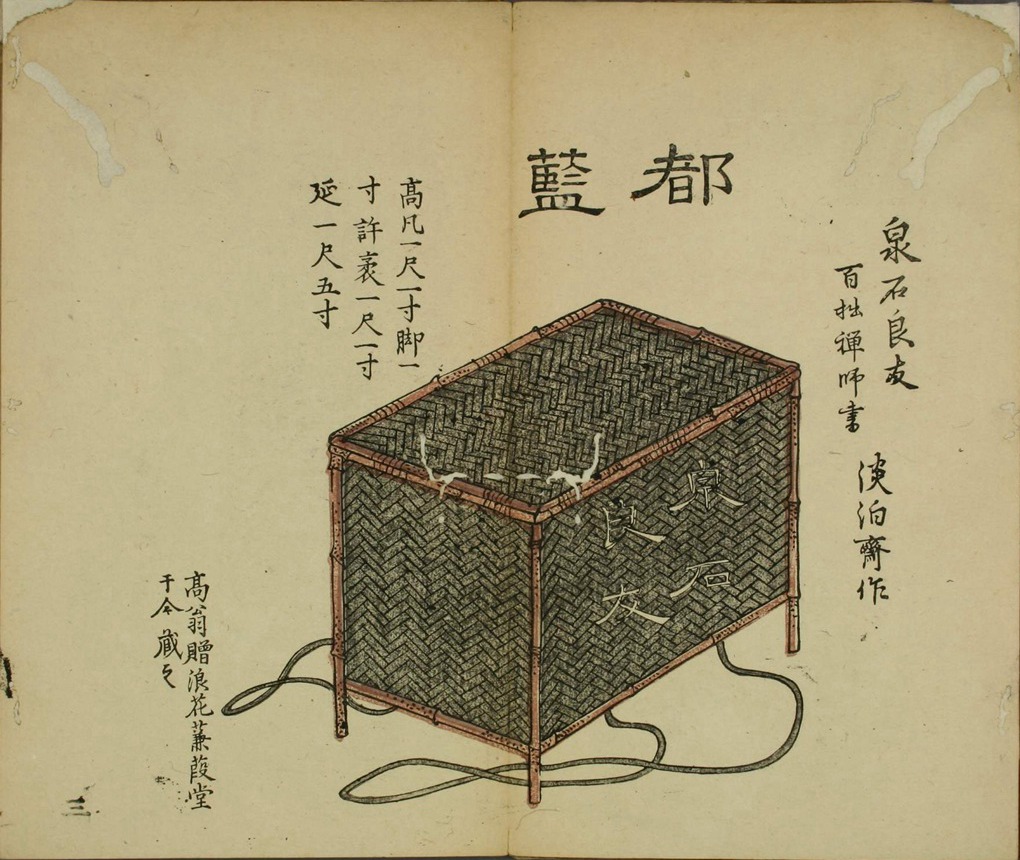 都藍
泉石良友
百拙禅師書
淡泊齋作
泉石
良友
高凡一尺一寸脚一
寸許袤一尺一寸
延一尺五寸
高翁贈浪花蒹葭堂
于今蔵之
三